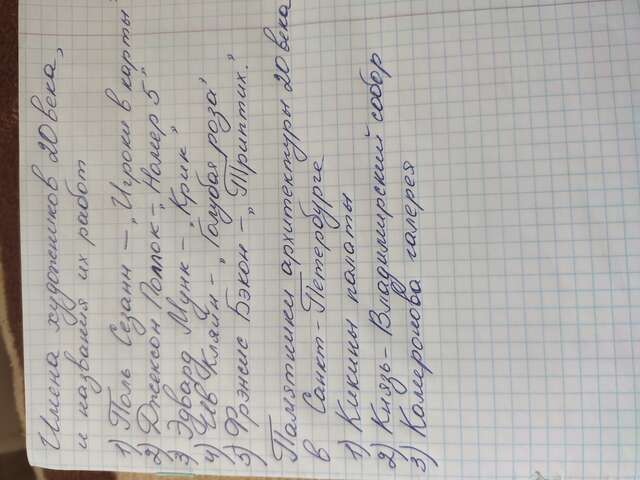 Имена художников 20 века,
и названия их работ
1) Поль Сезанн – „Игроки в карты"
2) Джексон Поллок – „Номер 5"
3) Эдвард Мунк – „Крик"
4) Ив Кляйн – „Голубая роза"
5) Фрэнсис Бэкон – „Триптих."
Памятники архитектуры 20 века
в Санкт-Петербурге
1) Кикины палаты
2) Князь-Владимирский собор
3) Камеронова галерея